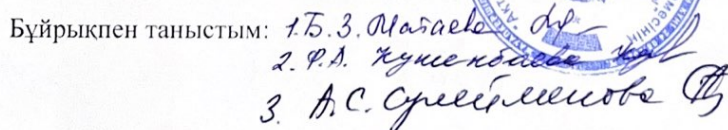 Бұйрықпен таныстым: 1. Б. З. Матаева
2. Ф.А. Кушенбаева
3. А.С. Сулейменова